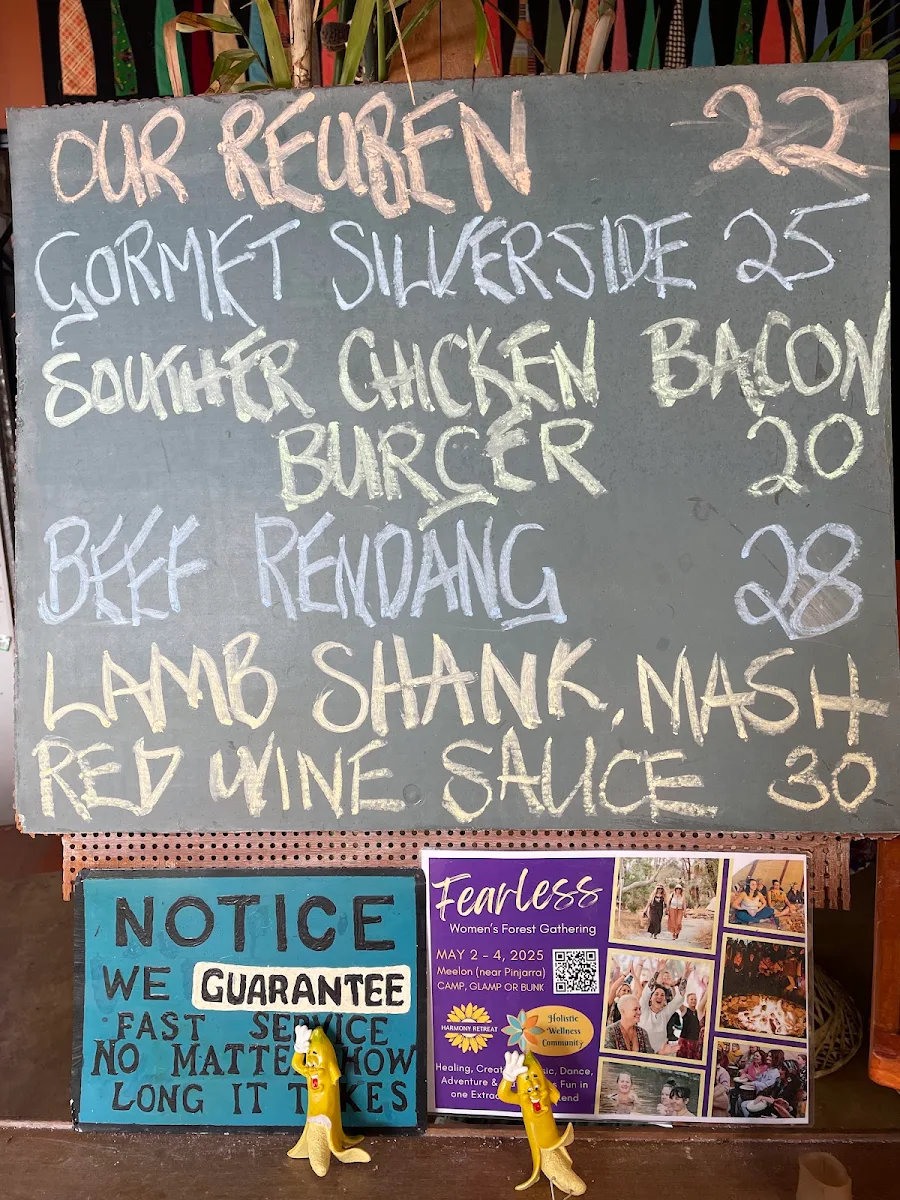 OUR REUBEN 22
GORMET SILVERSIDE 25
SOUTHER CHICKEN BACON
BURGER 20
BEEF RENDANG 28
LAMB SHANK, MASH
RED WINE SAUCE 30
NOTICE
WE GUARANTEE
FAST SERVICE
NO MATTER HOW
LONG IT TAKES
Fearless
Women's Forest Gathering
MAY 2 - 4, 2025
Meelon (near Pinjarra)
CAMP, GLAMP OR BUNK
HARMONY RETREAT
Holistic
Wellness
Community
Healing, Music, Dance,
Adventure & Fun in
one